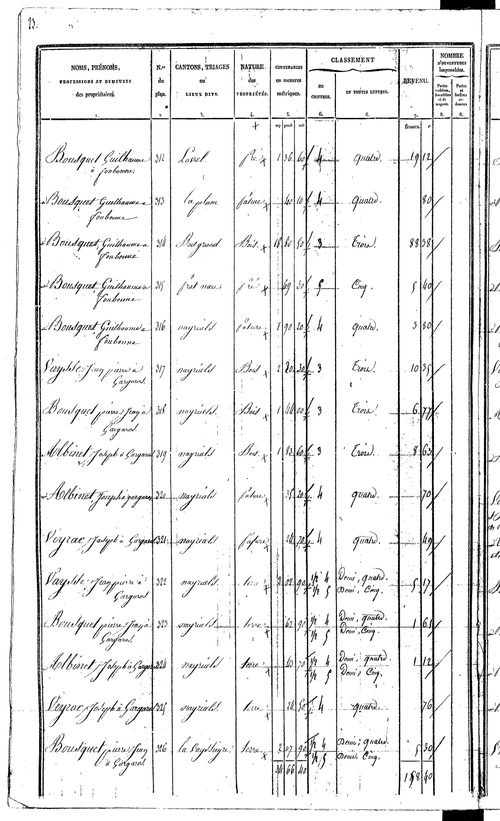 23.
NOMS, PRÉNOMS, PROFESSIONS ET DEMEURES des propriétaires. N.os du plan. CANTONS, TRIAGES ou LIEUX DITS. NATURE des PROPRIÉTÉS. CONTENANCES en mesures métriques. CLASSEMENT en chiffres. EN TOUTES LETTRES. REVENU. NOMBRE D'OUVERTURES imposables.
1. 2. 3. 4. 5. 6. 6. 7. 8. 8.
francs. c
Bousquet Guilhaume 312 Pré 1 36 60 4 quatre 19 12
à fonbonne
Bousquet Guilhaume a 313 pature 40 10 4 quatre 80
fonbonne
Bousquet Guilhaume a 314 Bosgrand Bois 18 80 50 3 Trois 88 38
fonbonne
Bousquet Guilhaume a 315 prat pré 69 30 5 Cinq 5 40
fonbonne
Bousquet Guilhaume a 316 nayrials pature 1 90 20 4 quatre 3 80
fonbonne
Jean pierre à 317 nayrials Bois 2 20 20 3 Trois 10 35
Gargaros
Bousquet pierre Jean à 318 nayrials Bois 1 44 00 3 Trois 6 77
Gargaros
Albinet Joseph à Gargaros 319 nayrials Bois 1 83 60 3 Trois 8 63
Albinet Joseph à gargaros 320 nayrials pature 35 20 4 quatre 70
Veyrac Joseph à Gargaros 321 nayrials pature 24 70 4 quatre 49
Jean pierre à 322 nayrials terre 2 02 90 1/2 4 Demi, quatre 5 17
Gargaros 1/2 5 Demi, Cinq
Bousquet pierre Jean à 323 nayrials terre 62 90 1/2 4 Demi, quatre 1 61
Gargaros 1/2 5 Demi, Cinq
Albinet Joseph à Gargaros 324 nayrials terre 43 70 1/2 4 Demi, quatre 1 12
1/2 5 Demi, Cinq
Veyrac Joseph à Gargaros 325 nayrials terre 24 50 4 quatre 76
Bousquet pierre Jean 326 terre 2 07 90 1/2 4 Demi, quatre 5 30
à Gargaros 1/2 5 Demi, Cinq
34 66 40 158 40